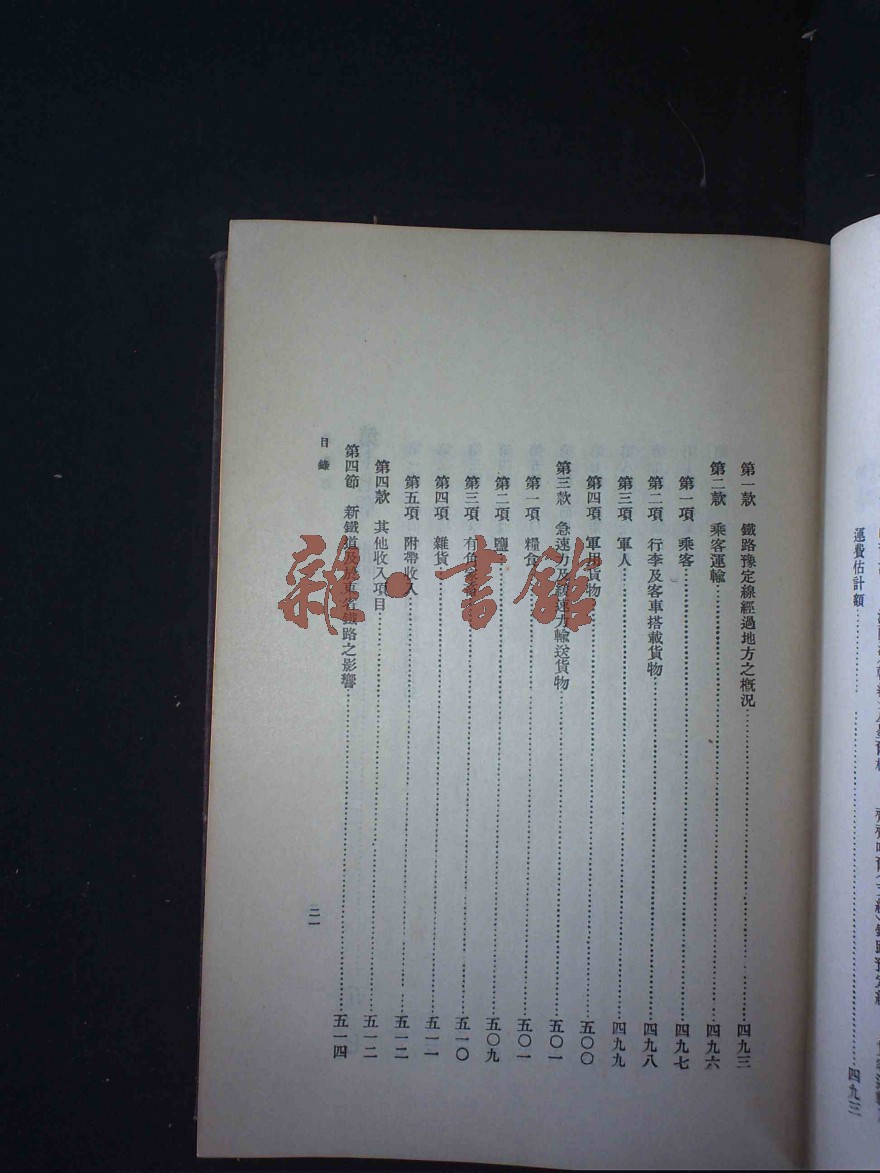 運費估計額……四九三
第一款 鐵路豫定線經過地方之概況……四九三
第二款 乘客運輸……四九六
第一項 乘客……四九七
第二項 行李及客車搭載貨物……四九八
第三項 軍人……四九九
第四項 軍用貨物……五〇〇
第三款 急速力及緩速力輸送貨物……五〇一
第一項 糧食……五〇一
第二項 鹽……五〇九
第三項 有角家畜……五一〇
第四項 雜貨……五一一
第五項 附帶收入……五一二
第四款 其他收入項目……五一二
第四節 新鐵道及於東省鐵路之影響……五一四
目錄
二一
雜·書館